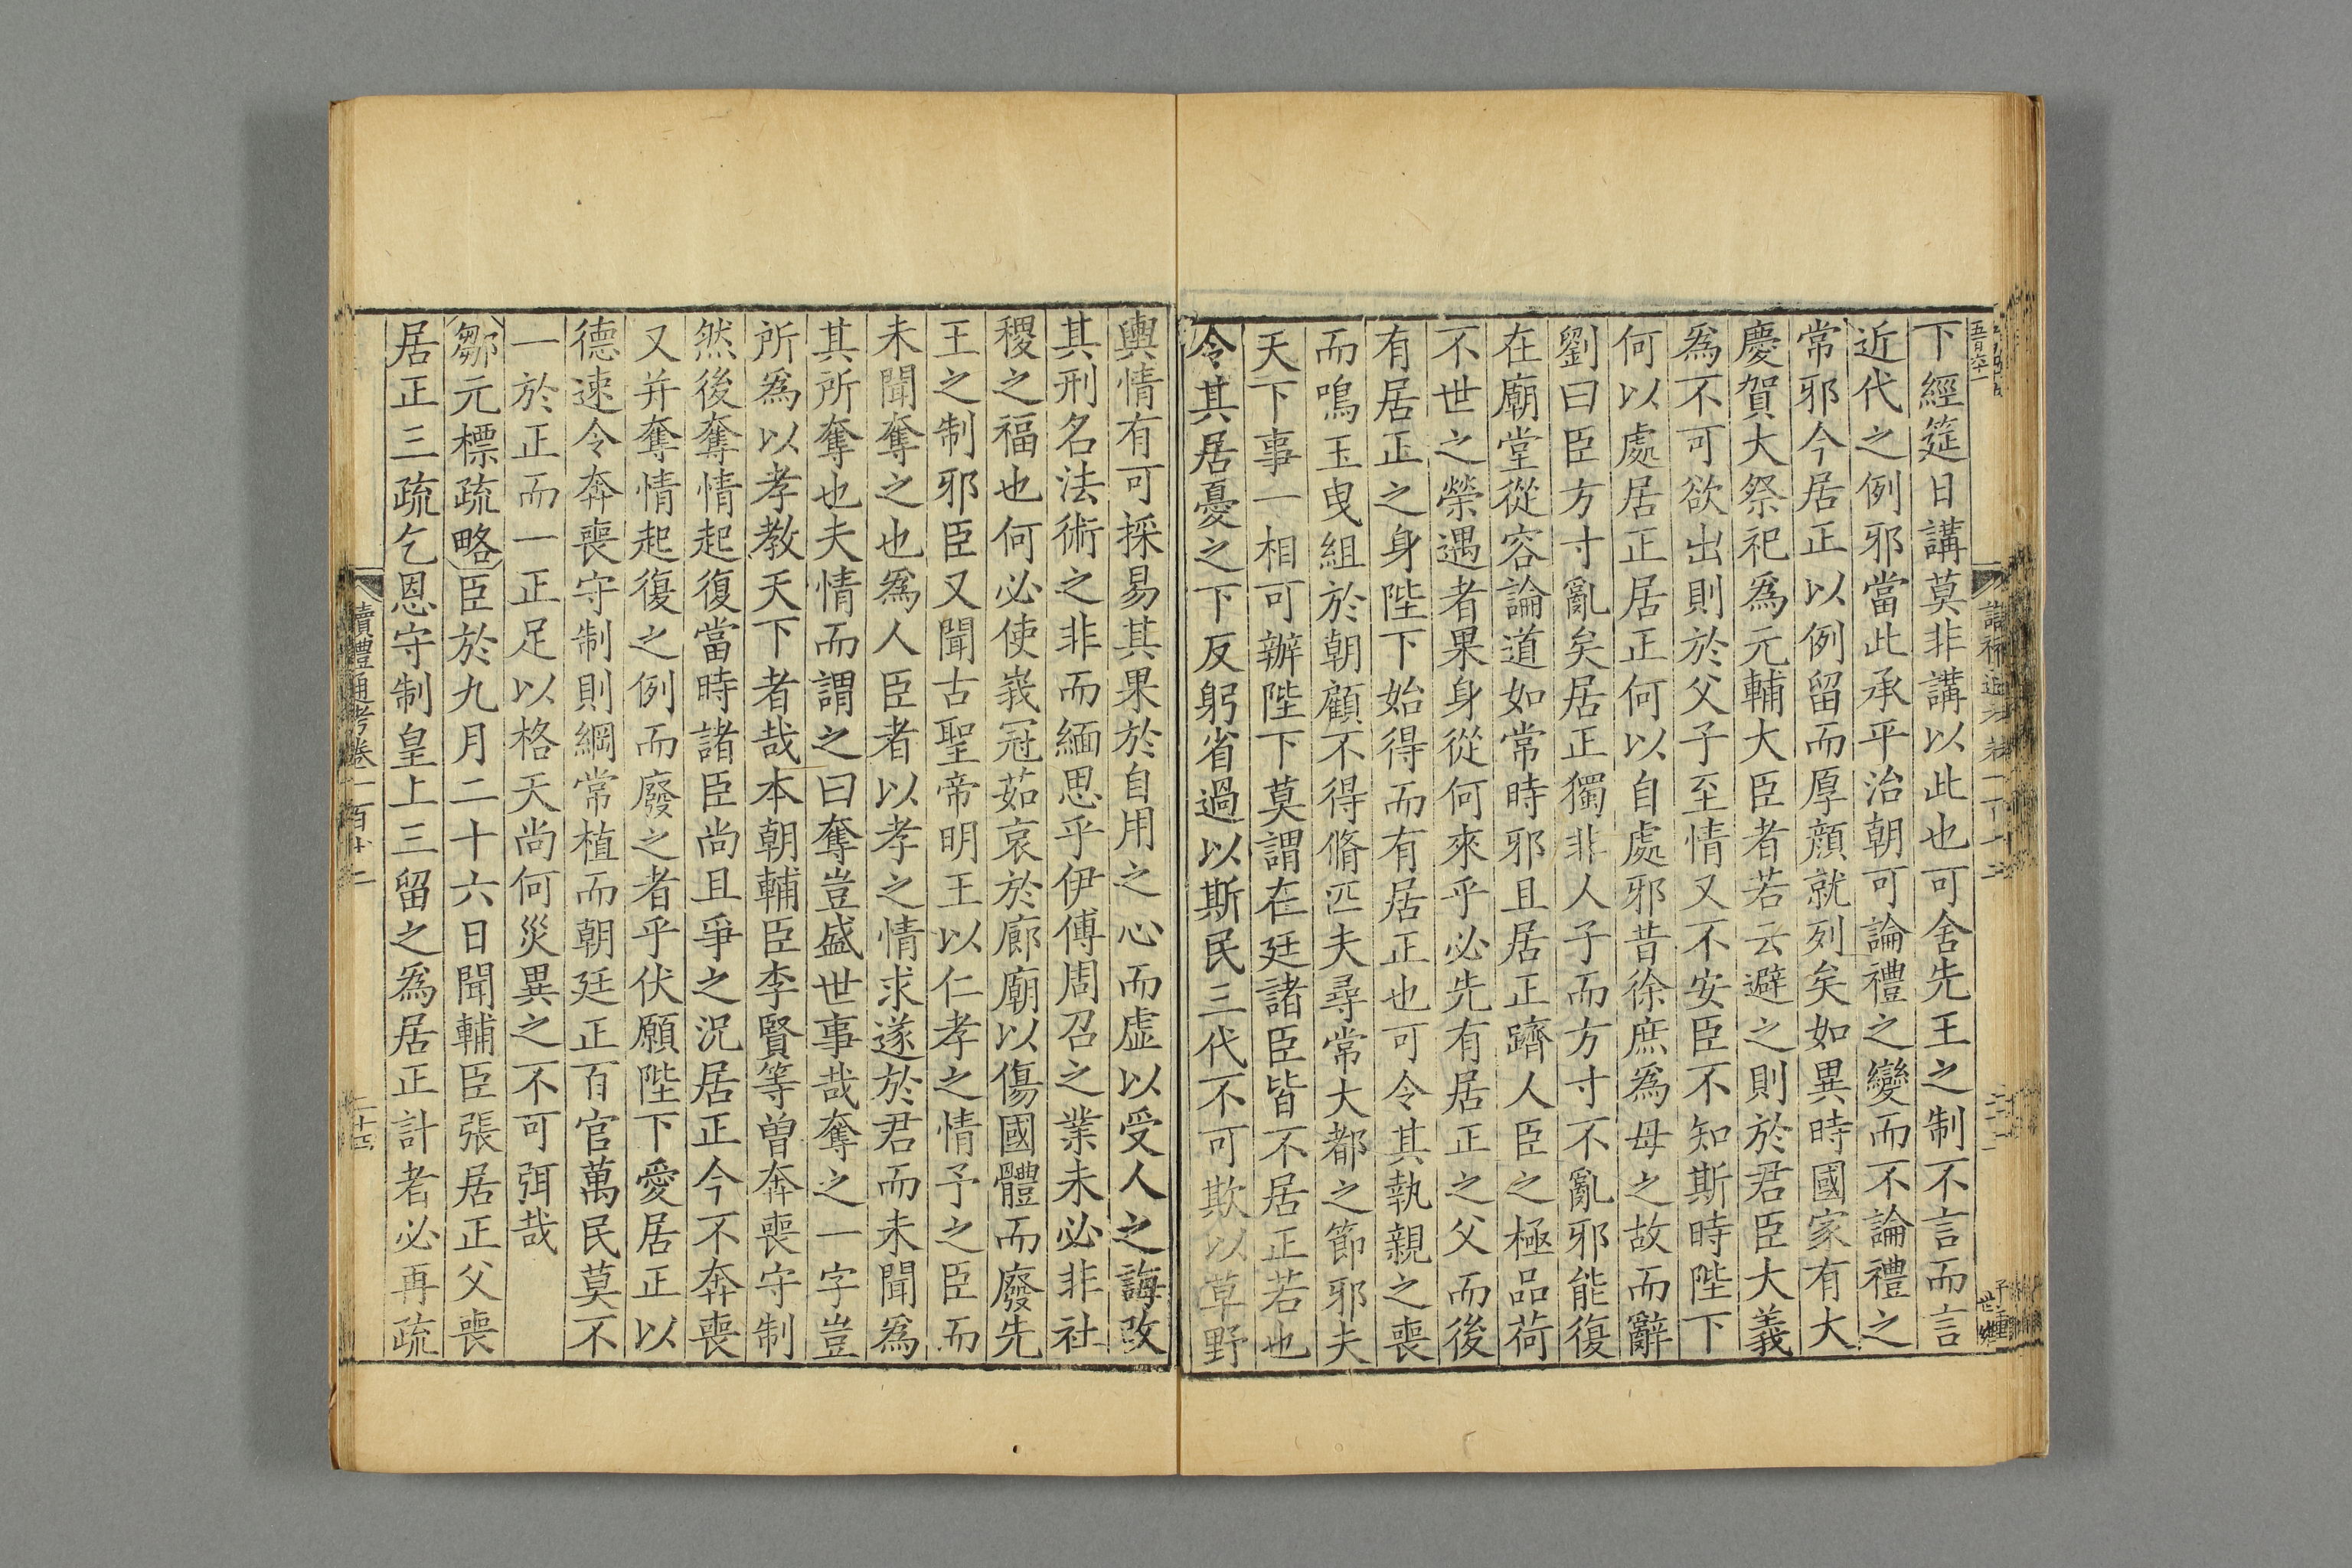 下經筵日講莫非講以此也可舍先王之制不言而言
近代之例邪當此承平治朝可論禮之變而不論禮之
常邪今居正以例留而厚顏就列矣如異時國家有大
慶賀大祭祀爲元輔大臣者若云避之則於君臣大義
爲不可欲出則於父子至情又不安臣不知斯時陛下
何以處居正居正何以自處邪昔徐庶爲母之故而辭
劉曰臣方寸亂矣居正獨非人子而方寸不亂邪能復
在廟堂從容論道如常時邪且居正躋人臣之極品荷
不世之榮遇者果身從何來乎必先有居正之父而後
有居正之身陛下始得而有居正也可令其執親之喪
而鳴玉曳組於朝顧不得脩匹夫尋常大都之節邪夫
天下事一相可辦陛下莫謂在廷諸臣皆不居正若也
令其居憂之下反躬省過以斯民三代不可欺以草野
輿情有可採易其果於自用之心而虛以受人之誨改
其刑名法術之非而緬思乎伊傅周召之業未必非社
稷之福也何必使峩冠茹哀於廊廟以傷國體而廢先
王之制邪臣又聞古聖帝明王以仁孝之情予之臣而
未聞奪之也爲人臣者以孝之情求遂於君而未聞爲
其所奪也夫情而謂之曰奪豈盛世事哉奪之一字豈
所爲以孝教天下者哉本朝輔臣李賢等曾奔喪守制
然後奪情起復當時諸臣尚且爭之況居正今不奔喪
又并奪情起復之例而廢之者乎伏願陛下愛居正以
德速令奔喪守制則綱常植而朝廷正百官萬民莫不
一於正而一正足以格天尚何災異之不可弭哉
鄒元標疏略臣於九月二十六日聞輔臣張居正父喪
居正三疏乞恩守制皇上三留之爲居正計者必再疏
讀禮通考卷一百十二
二十四